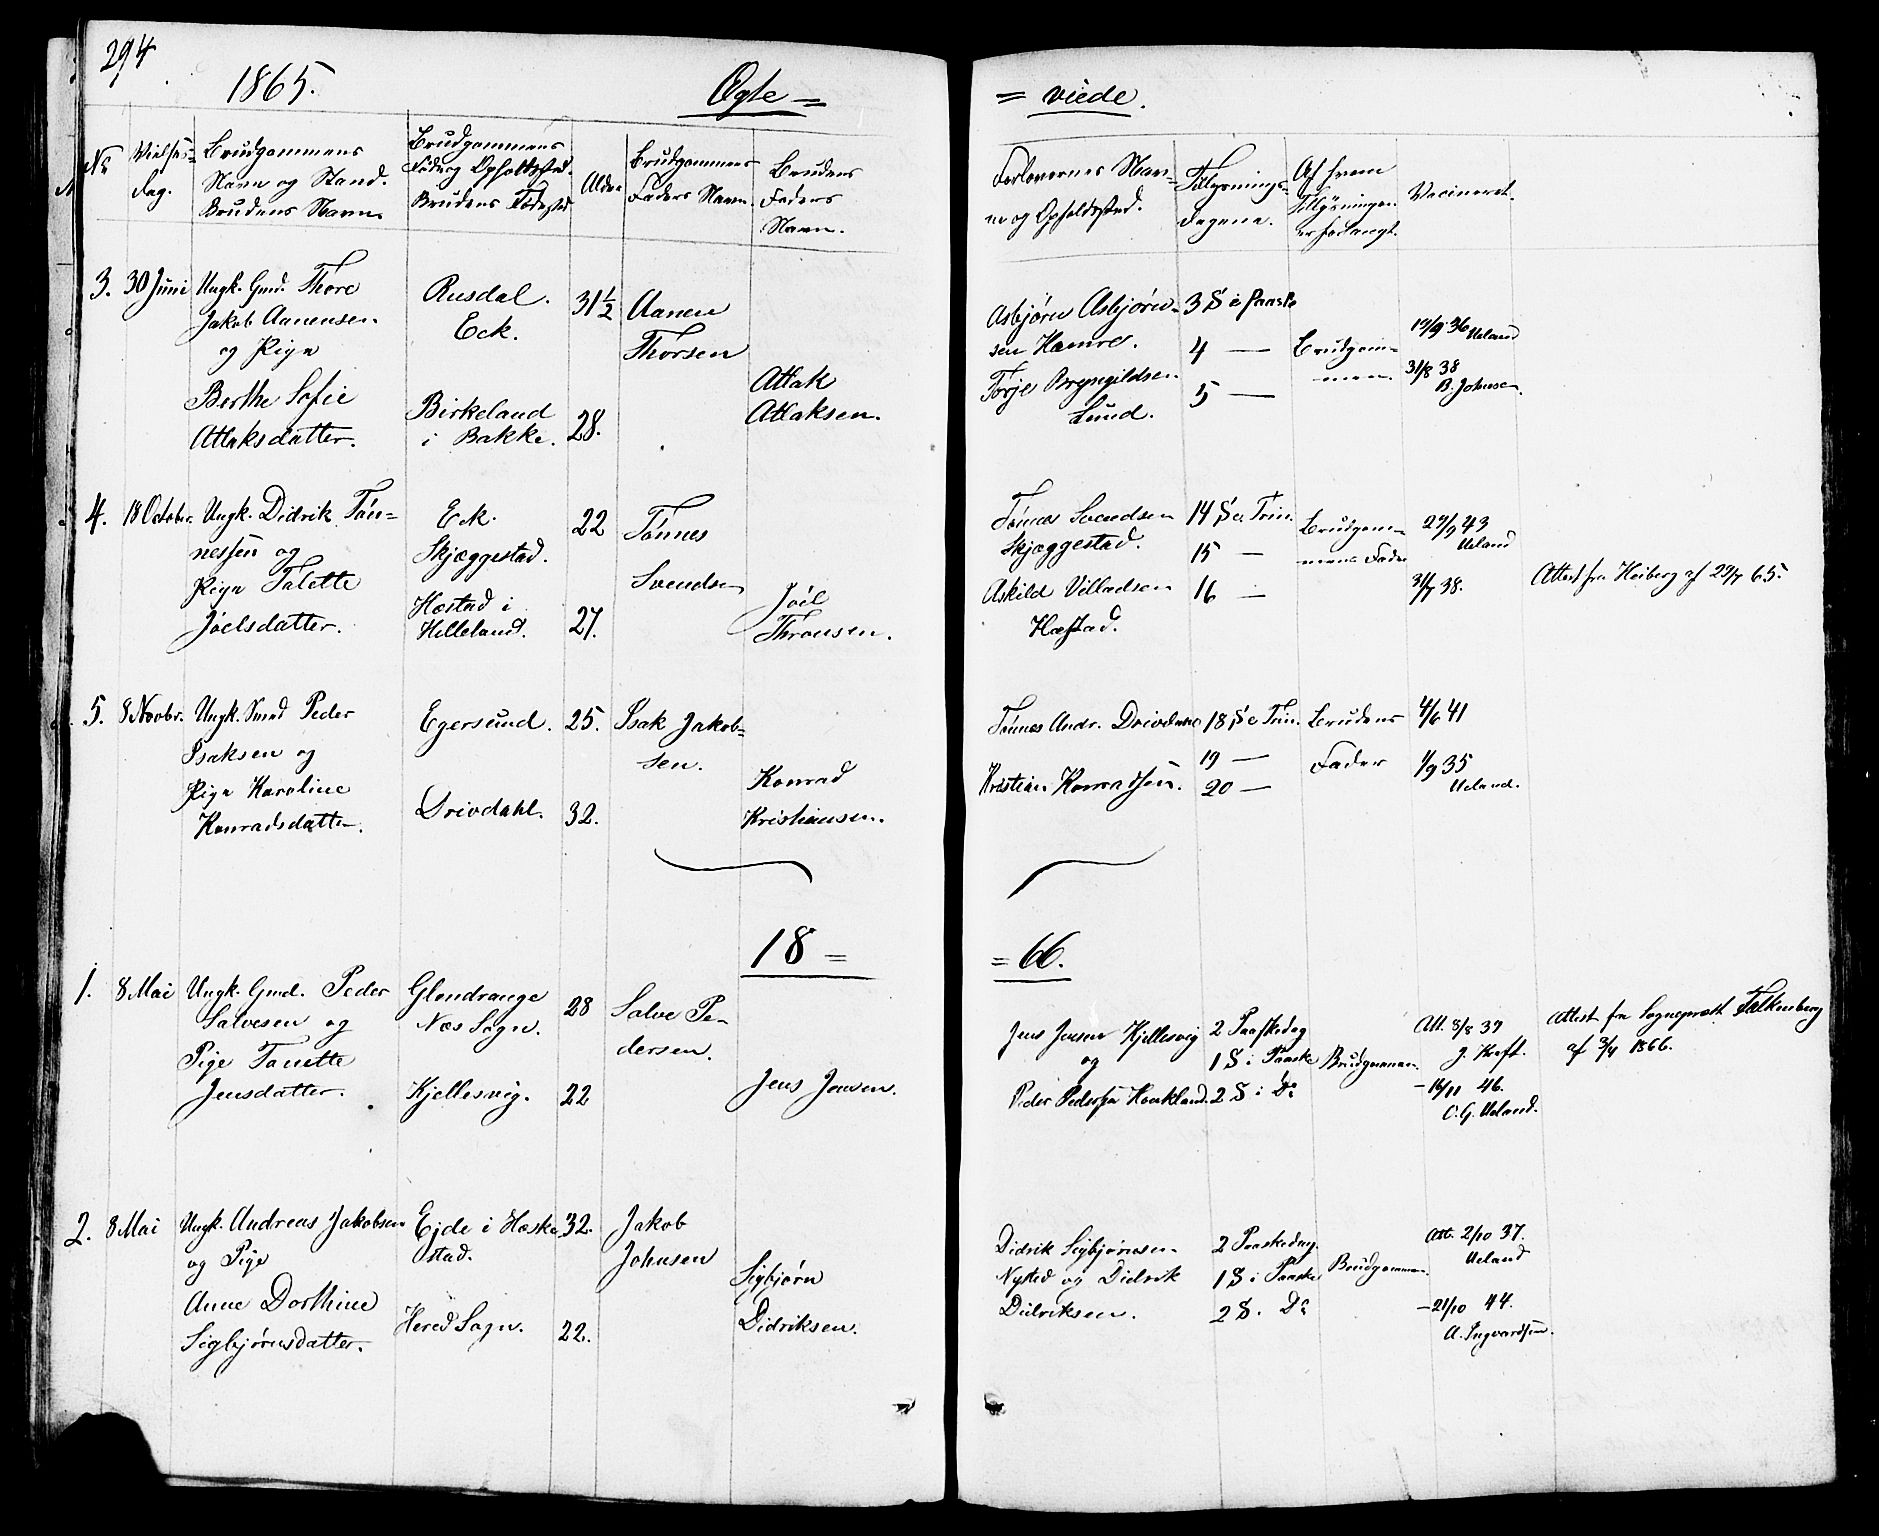 294
1865.
Ægte =
= viede.
No
Vielses-
dag.
Brudgommens
Navn og Stand.
Brudens Navn.
Brudgommens
Føde og Opholdssted.
Brudens Fødested
Alder
Brudgommens
Faders Navn.
Brudens
Faders
Navn.
Forlovernes Nav-
ne og Opholdssted.
Tillysnings-
dagene.
Af hvem
Tillysningen
er forlangt.
Vacineret.
3.
30 Juni
Ungk. Gmd. Thore
Jakob Aanensen
og Pige
Berthe Sofie
Atlaksdatter.
Rusdal.
Eck.
Birkeland
i Bakke.
31½
28.
Aanen
Thorsen
Atlak
Atlaksen.
Asbjørn Asbjørn-
sen Hamre.
Torje Bryngildsen
Lund.
3 S e Paaske
4 —
5 —
Brudgom-
men.
19/9 36 Ueland
31/8 38
B. Johnsen.
4.
18 Octobr.
Ungk. Didrik Tøn-
nessen og
Pige Talette
Joelsdatter.
Eck.
Skjæggestad.
Hæstad i
Helleland.
22
27.
Tønnes
Svendsen
Joel
Thronsen.
Tønnes Svendsen
Skjæggestad.
Askild Villadsen
Hæstad.
14 S e. Trin.
15 —
16 —
Brudgom-
mens Fader
29/9 43
Ueland
31/7 38.
Attest fra Heiberg af 29/7 65.
5.
8 Novbr.
Ungk. Smed Peder
Isaksen og
Pige Karoline
Konradsdatter.
Egersund.
Drivdahl.
25.
32.
Isak Jakob-
sen.
Konrad
Kristiansen.
Tønnes Andr. Drivdahl
Kristian Konradsen.
18 S e Trin.
19 —
20 —
Brudens
Fader
4/6 41
1/9 35
Ueland.
18 =
= 66.
1.
8 Mai
Ungk. Gmd. Peder
Salvesen og
Pige Tanette
Jensdatter.
Glendrange
Næs Sogn.
Kjellesvig.
28
22
Salve Pe-
dersen.
Jens Jensen.
Jens Jensen Kjellesvig
og
Peder Pedersen Haukland.
2 Paaskedag
1 S i Paaske
2 S i Do
Brudgommen.
Att. 8/8 39
J. Kraft.
- 16/11 46.
C. G. Ueland.
Attest fra Sogneprest Falkenberg
af 3/4 1866.
2.
8 Mai
Ungk. Andreas Jakobsen
og Pige
Anne Dorthine
Sigbjørnsdatter.
Ejde i Heske-
stad.
Hered Sogn.
32.
22.
Jakob
Johnsen
Sigbjørn
Didriksen.
Didrik Sigbjørnsen
Nysted og Didrik
Didriksen.
2 Paaskedag.
1 S i Paaske
2 S. Do
Brudgommen.
Att. 2/10 37.
Ueland
- 21/10 44.
A. Ingvardsen.